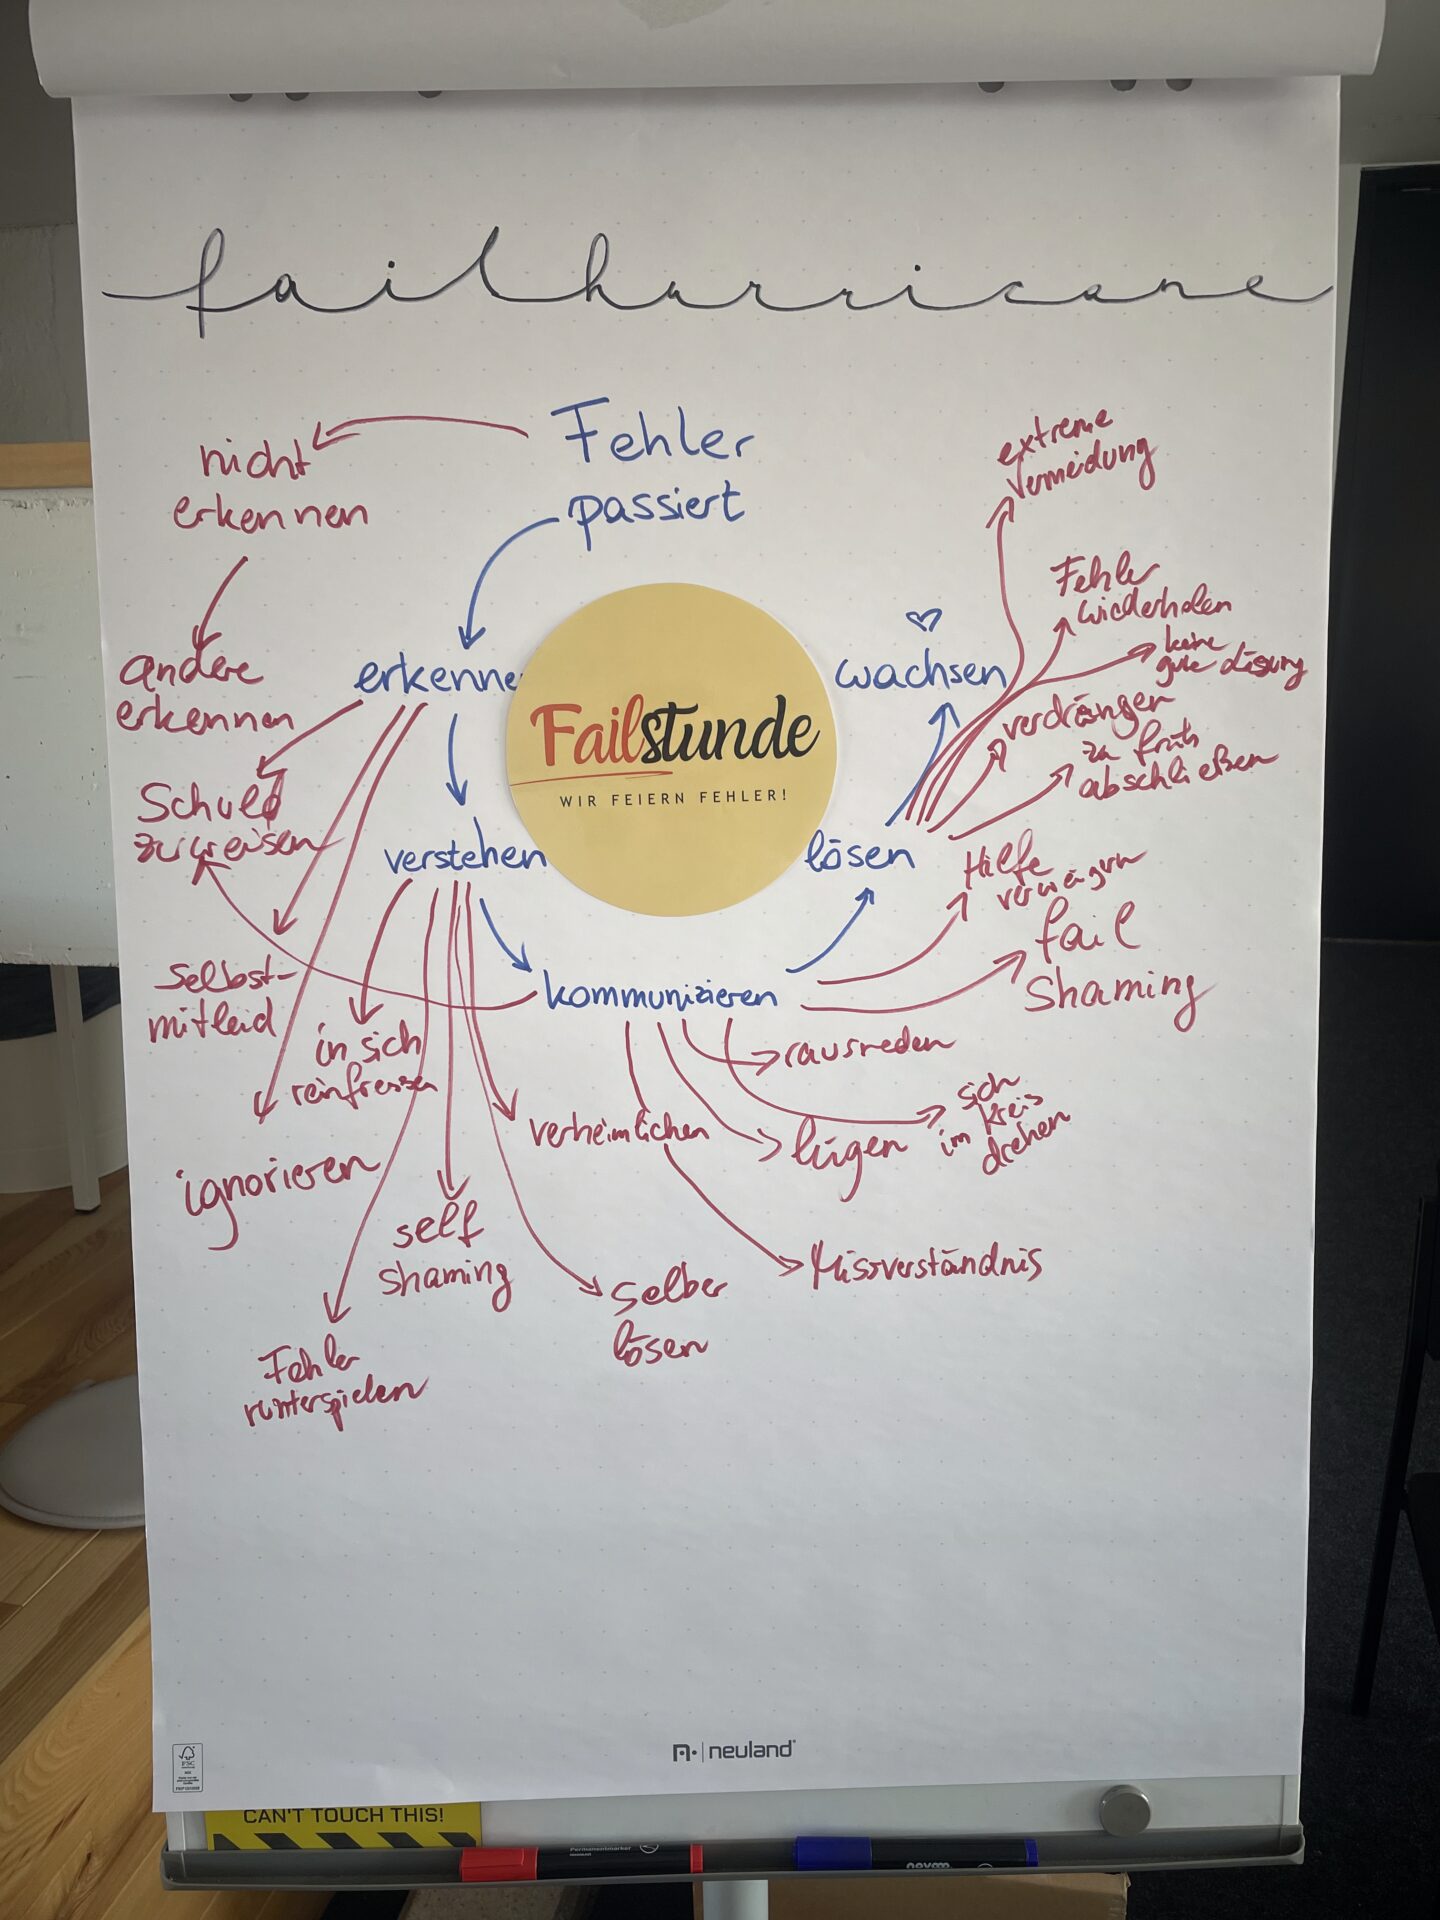 failhurricane
Fehler
passiert
nicht
erkennen
extreme
Vermeidung
Fehler
wiederholen
keine
gute Lösung
wachsen
andere
erkennen
erkenne
verdrängen
zu früh
abschließen
Failstunde
WIR FEIERN FEHLER!
Schuld
zuweisen
verstehen
lösen
Hilfe
verweigern
fail
Shaming
kommunizieren
Selbst-
mitleid
in sich
reinfressen
rausreden
sich
im Kreis
drehen
verheimlichen
lügen
ignorieren
self
shaming
Missverständnis
selber
lösen
Fehler
runterspielen
neuland
FSC
CAN'T TOUCH THIS!
Permanentmarker